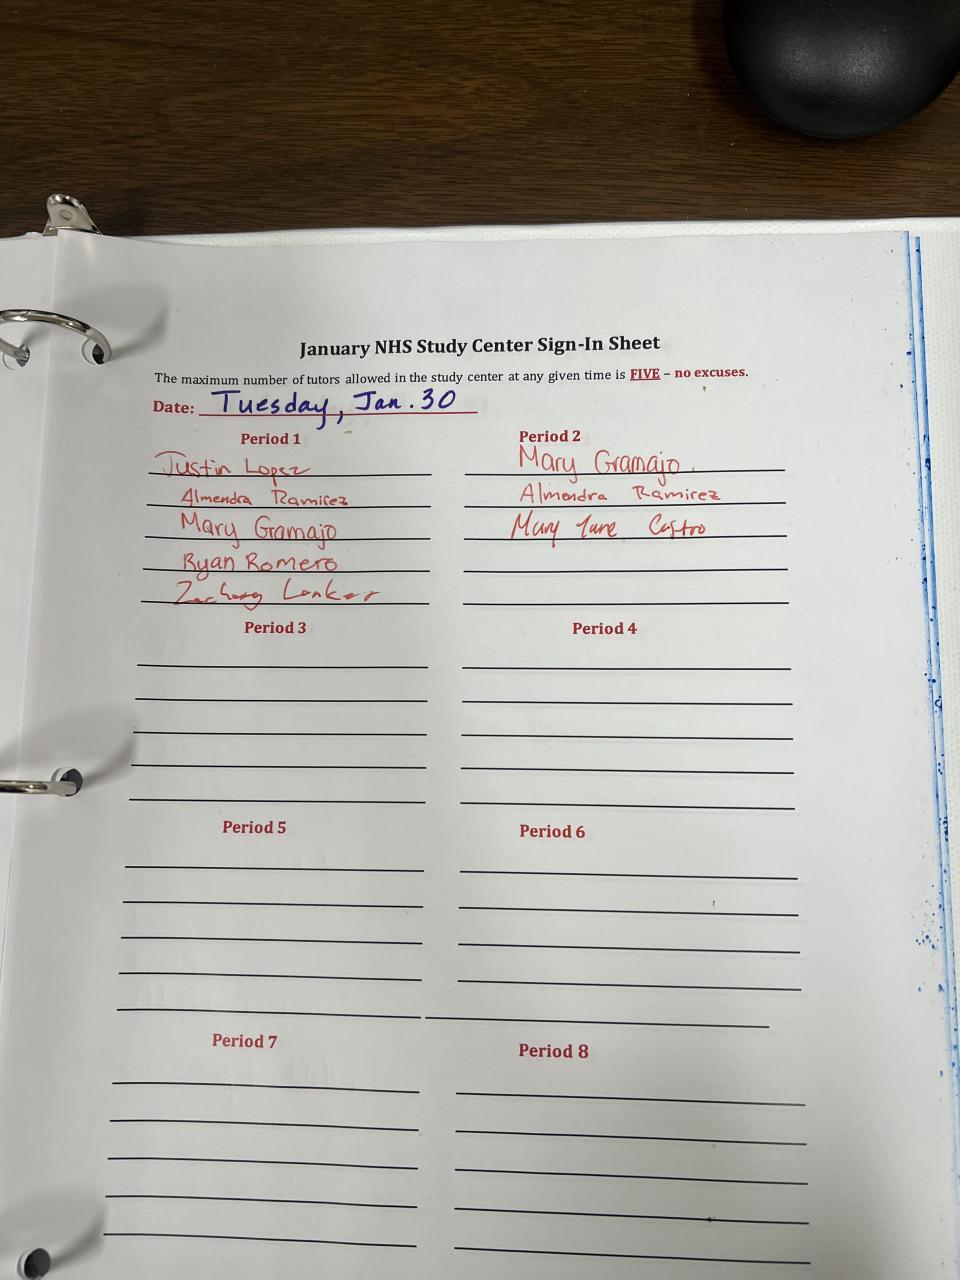 January NHS Study Center Sign-In Sheet
The maximum number of tutors allowed in the study center at any given time is FIVE – no excuses.
Date: Tuesday, Jan. 30
Period 1
Justin Lopez
Almendra Ramirez
Mary Gramajo
Ryan Romero
Zachary Lonker
Period 2
Mary Gramajo
Almendra Ramirez
Mary Jane Castro
Period 3
Period 4
Period 5
Period 6
Period 7
Period 8